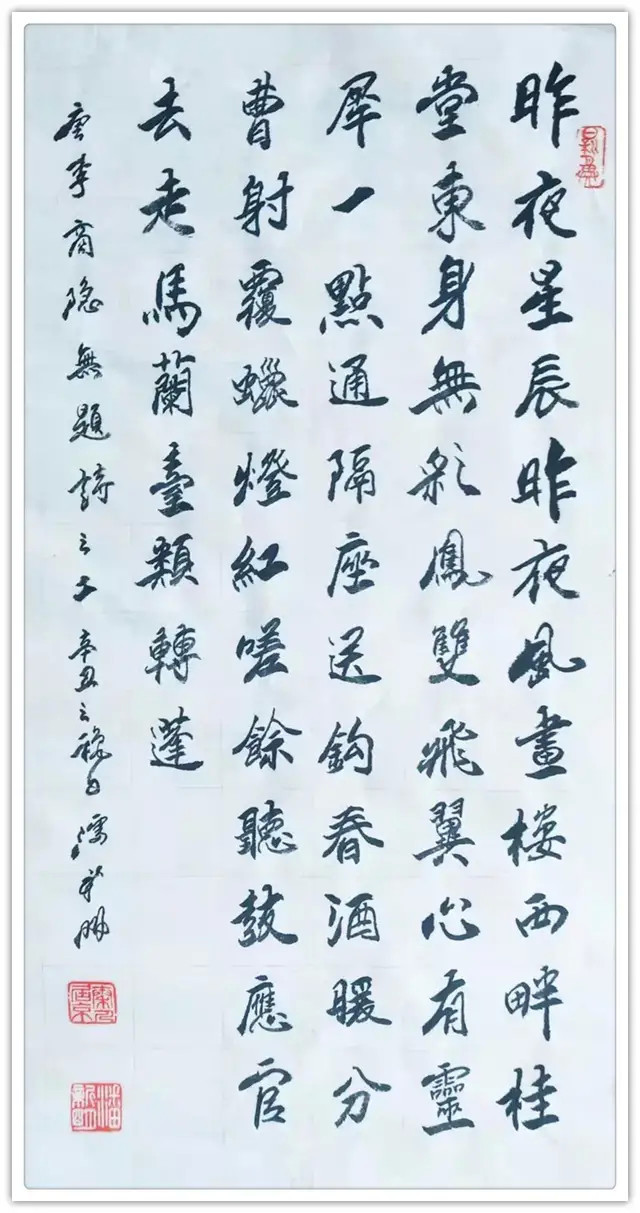 昨夜星辰昨夜風畫樓西畔桂
堂東身無彩鳳雙飛翼心有靈
犀一點通隔座送鈎春酒暖分
曹射覆蠟燈紅嗟餘聽鼓應官
去走馬蘭臺類轉蓬
唐李商隐無題詩之 辛丑之穐月潘